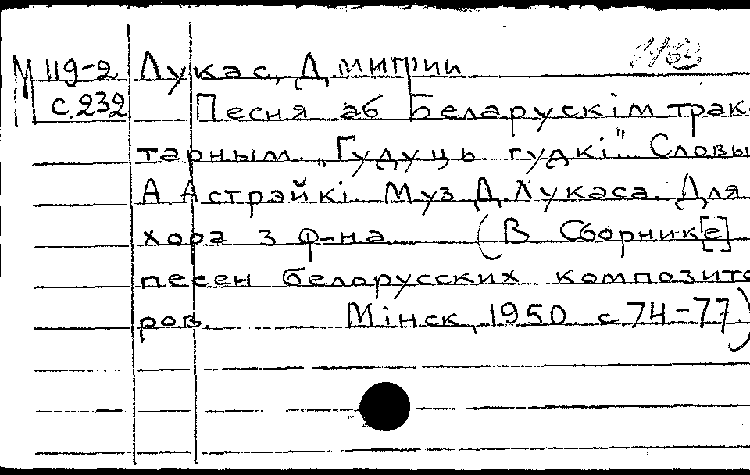 М 119-2 Лукас, Дмитрий
с.232 Песня аб Беларускім трак-
тарным. „Гудуць гудкі“. Словы
А Астрэйкі. Муз Д. Лукаса. Для
хора з ф-на (В Сборник[е]
песен белорусских композито
ров. Мінск, 1950 с 74-77)